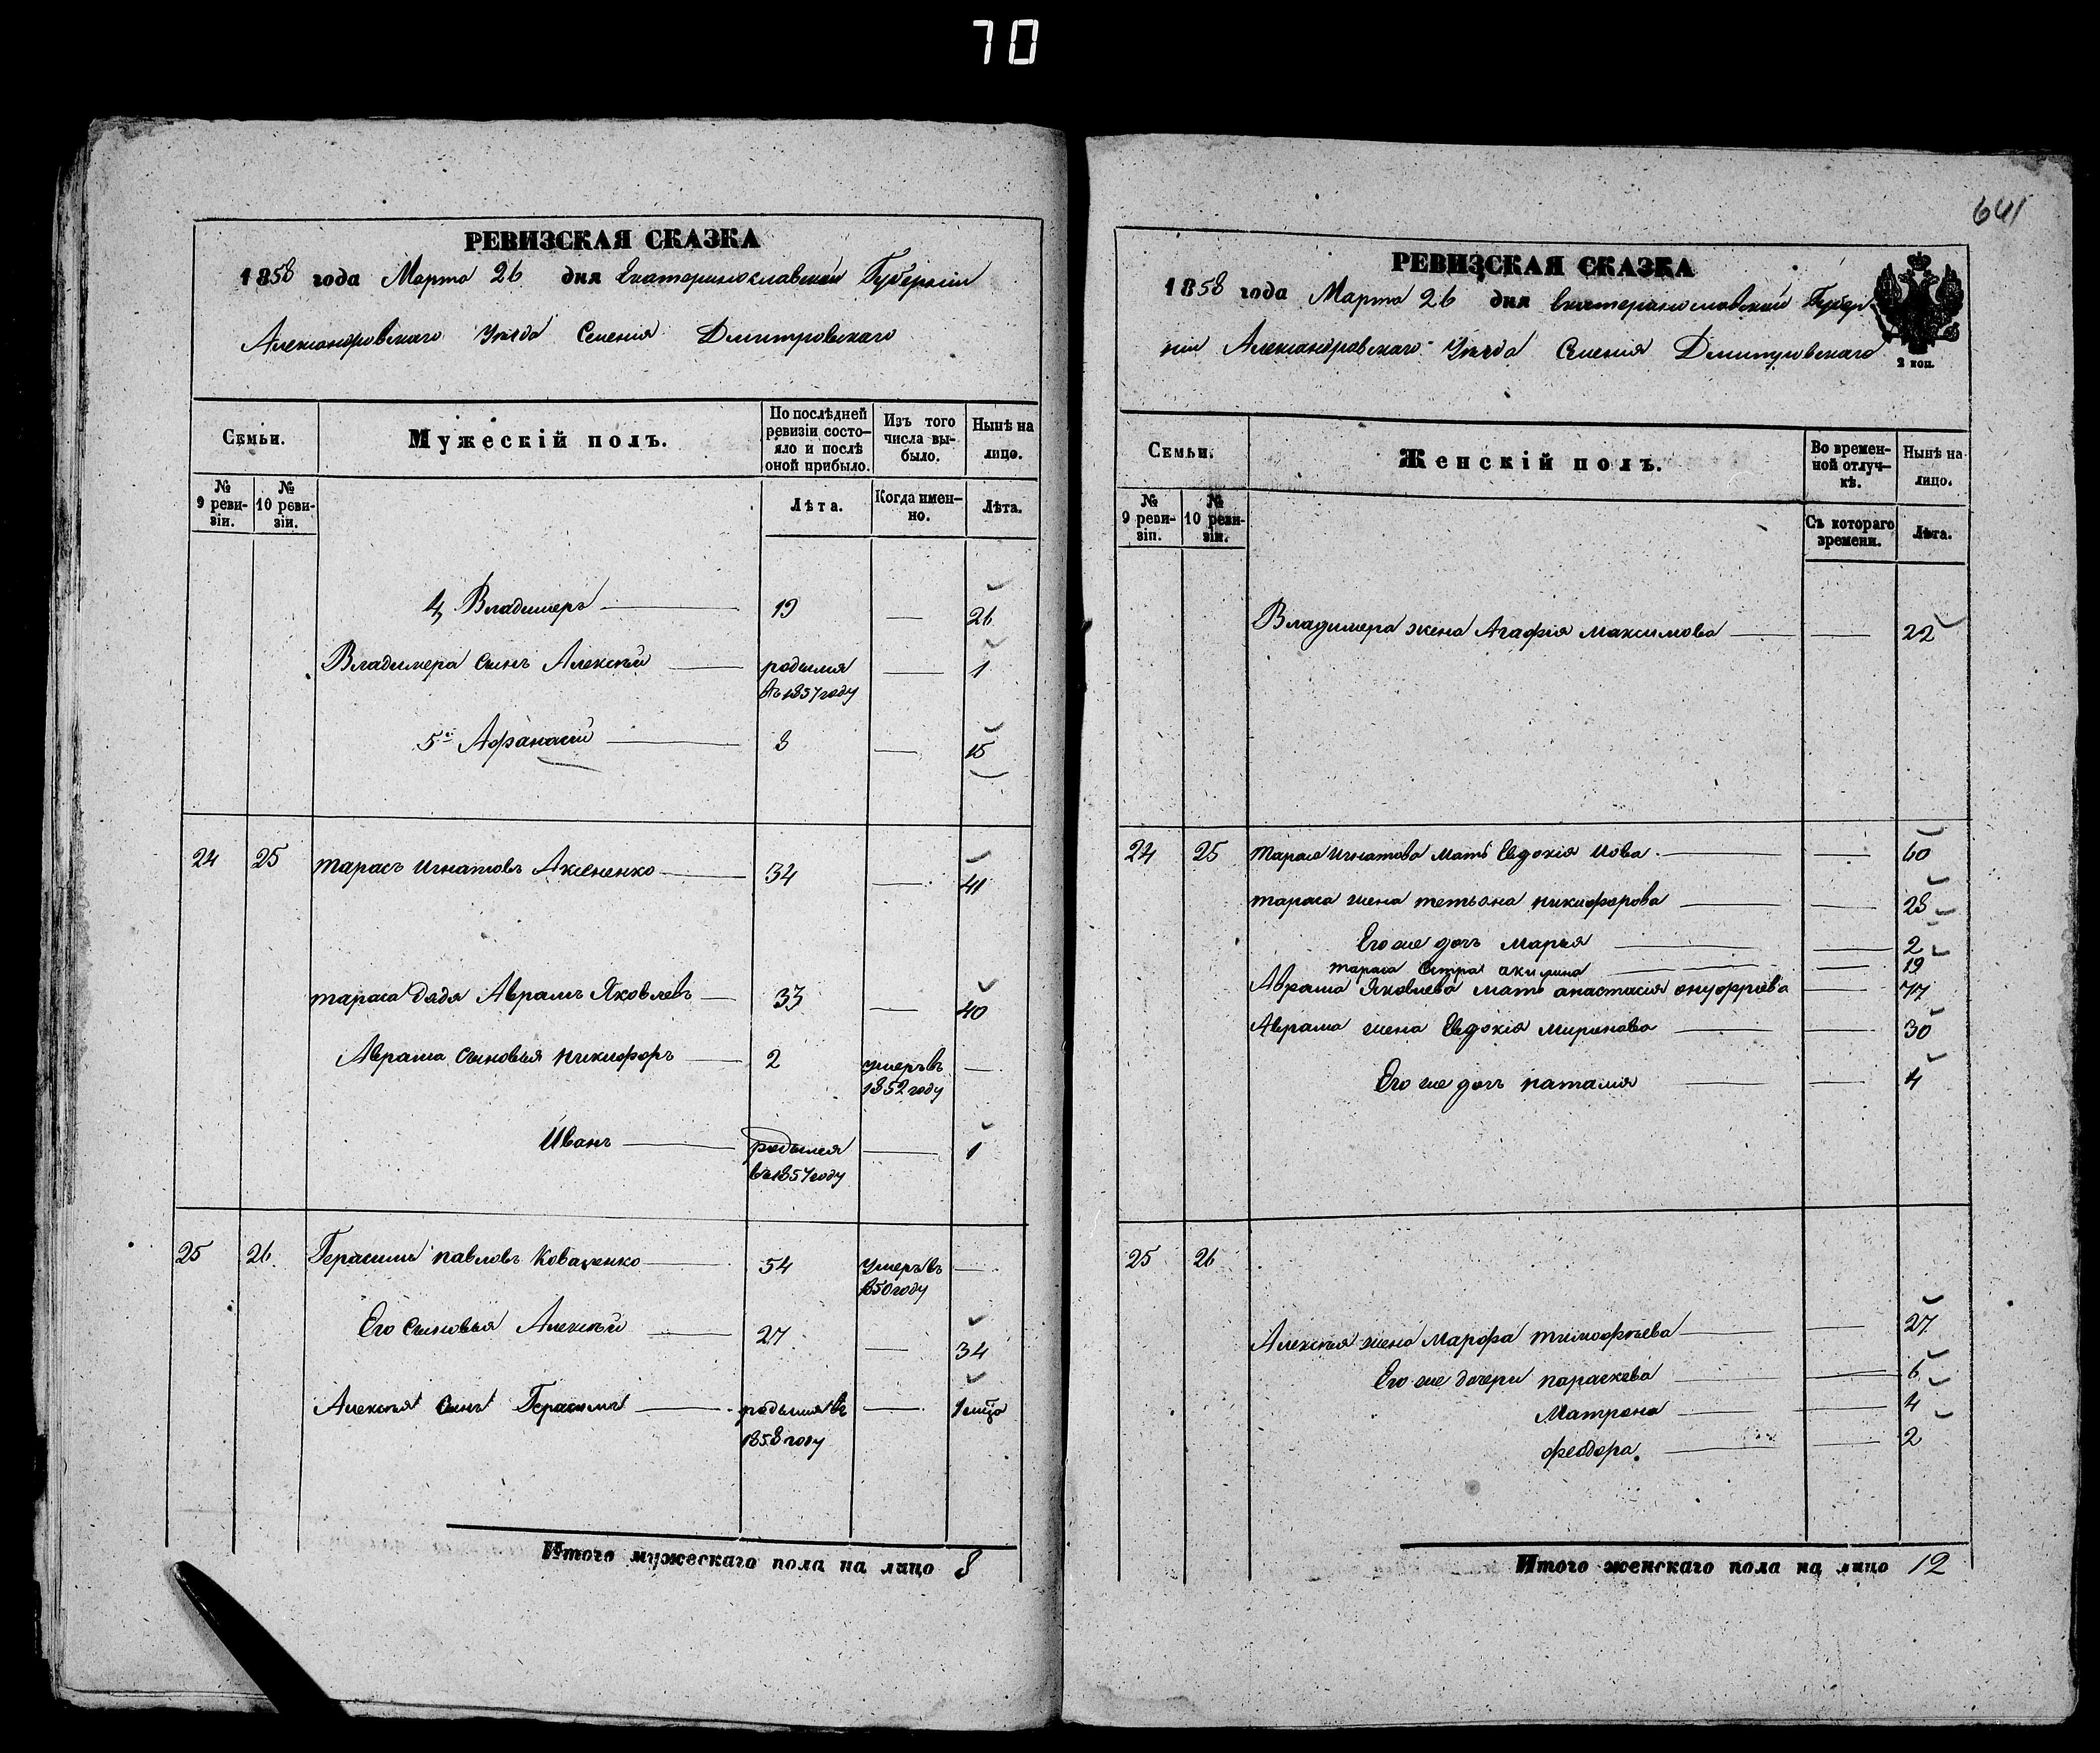 70
РЕВИЗСКАЯ СКАЗКА
1858 года Марта 26 дня Екатеринославской Губернии
Александровского Уѣзда Селения Дмитровского
Семьи.
Мужескій полъ.
По послѣдней ревизіи состо-
яло и послѣ оной прибыло.
Изъ того числа вы-
было.
Нынѣ на лицо.
№ 9 реви-
зіи.
№ 10 реви-
зіи.
Лѣта.
Когда имен-
но.
Лѣта.
4, Владимеръ 19 — 26
Владимера сынъ Алексѣй родился — 1
въ 1857 году
5й Афанасий 8 — 15
24 25 тарасъ игнатовъ Аксененко 34 — 41
тараса дядя Аврамъ Яковлевъ 33 — 40
Аврама сыновья никифоръ 2 умеръ въ —
1852 году
Иванъ родился — 1
въ 1857 году
25 26. Герасимъ павловъ Коваленко 54 Умеръ въ —
1850 году
Его сыновья Алексѣй 27 — 34
Алексѣя сынъ Герасимъ родился въ —
1858 году
Итого мужескаго пола на лицо 8
641
РЕВИЗСКАЯ СКАЗКА
1858 года Марта 26 дня Екатеринославской Губер
ніи Александровского Уѣзда Селения Дмитровского
2 коп.
Семьи.
Женскій полъ.
Во времен-
ной отлуч-
кѣ.
Нынѣ на лицо.
№ 9 реви-
зіи.
№ 10 реви-
зіи.
Съ котораго времени.
Лѣта.
Владимера жена Агафія максимова — 22
24 25 тараса игнатова мать Евдокія Иова — 60
тараса жена тетьяна никифорова — 28
Его же дочь марья — 2
тараса сестра акилина — 19
Аврама Яковлева мать анастасія онуфріева — 77
Аврама жена Евдокія миронова — 30
Его же дочь наталия — 4
25 26
Алексѣя жена Марфа тимофѣева — 27
Его же дочери параскева — 6
Матрона — 4
феодора — 2
Итого женскаго пола на лицо 12